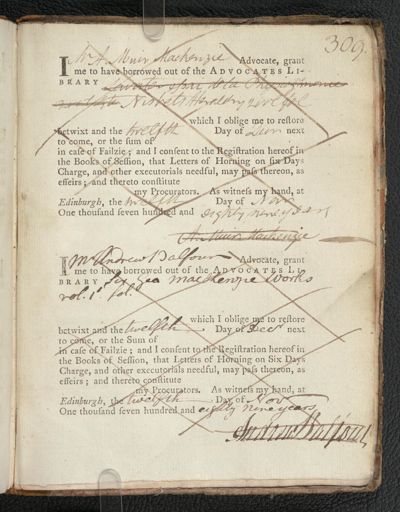 309.
I Mr A. Muir Mackenzie Advocate, grant
me to have borrowed out of the ADVOCATES LI-
BRARY
Nisbets Heraldry 2 vol fol
which I oblige me to reſtore
betwixt and the twelfth Day of next
to come, or the ſum of
in caſe of Failzie; and I conſent to the Regiſtration hereof in
the Books of Seſſion, that Letters of Horning on ſix Days
Charge, and other executorials needful, may paſs thereon, as
effeirs; and thereto conſtitute
my Procurators. As witneſs my hand, at
Edinburgh, the twelfth Day of Nov
One thouſand ſeven hundred and eighty nine years
A. Muir Mackenzie
I Mr Andrew Balfour Advocate, grant
me to have borrowed out of the ADVOCATES LI-
BRARY Sir Geo mackenzie works
vol. 1st fol.
which I oblige me to reſtore
betwixt and the twelfth Day of Decr next
to come, or the Sum of
in caſe of Failzie; and I conſent to the Regiſtration hereof in
the Books of Seſſion, that Letters of Horning on Six Days
Charge, and other executorials needful, may paſs thereon, as
effeirs; and thereto conſtitute
my Procurators. As witneſs my hand, at
Edinburgh, the twelfth Day of Nov
One thouſand ſeven hundred and eighty nine years
Andrew Balfour